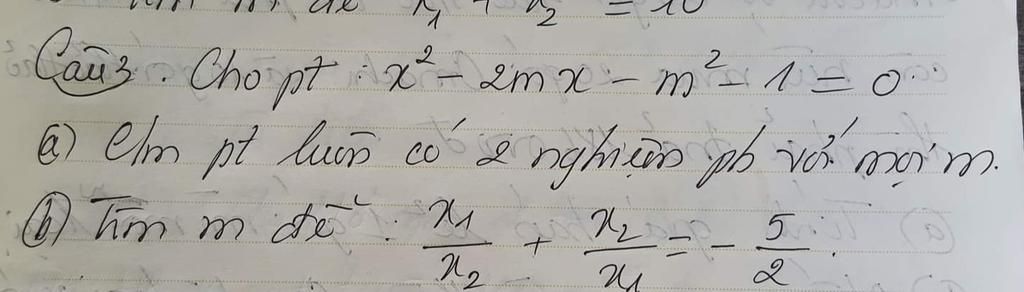 Tìm m để x₁² + x₂² = 10
Câu 3. Cho pt : x² - 2mx - m² - 1 = 0.
a) C/m pt luôn có 2 nghiệm pb với mọi m.
b) Tìm m để : x₁/x₂ + x₂/x₁ = - 5/2.